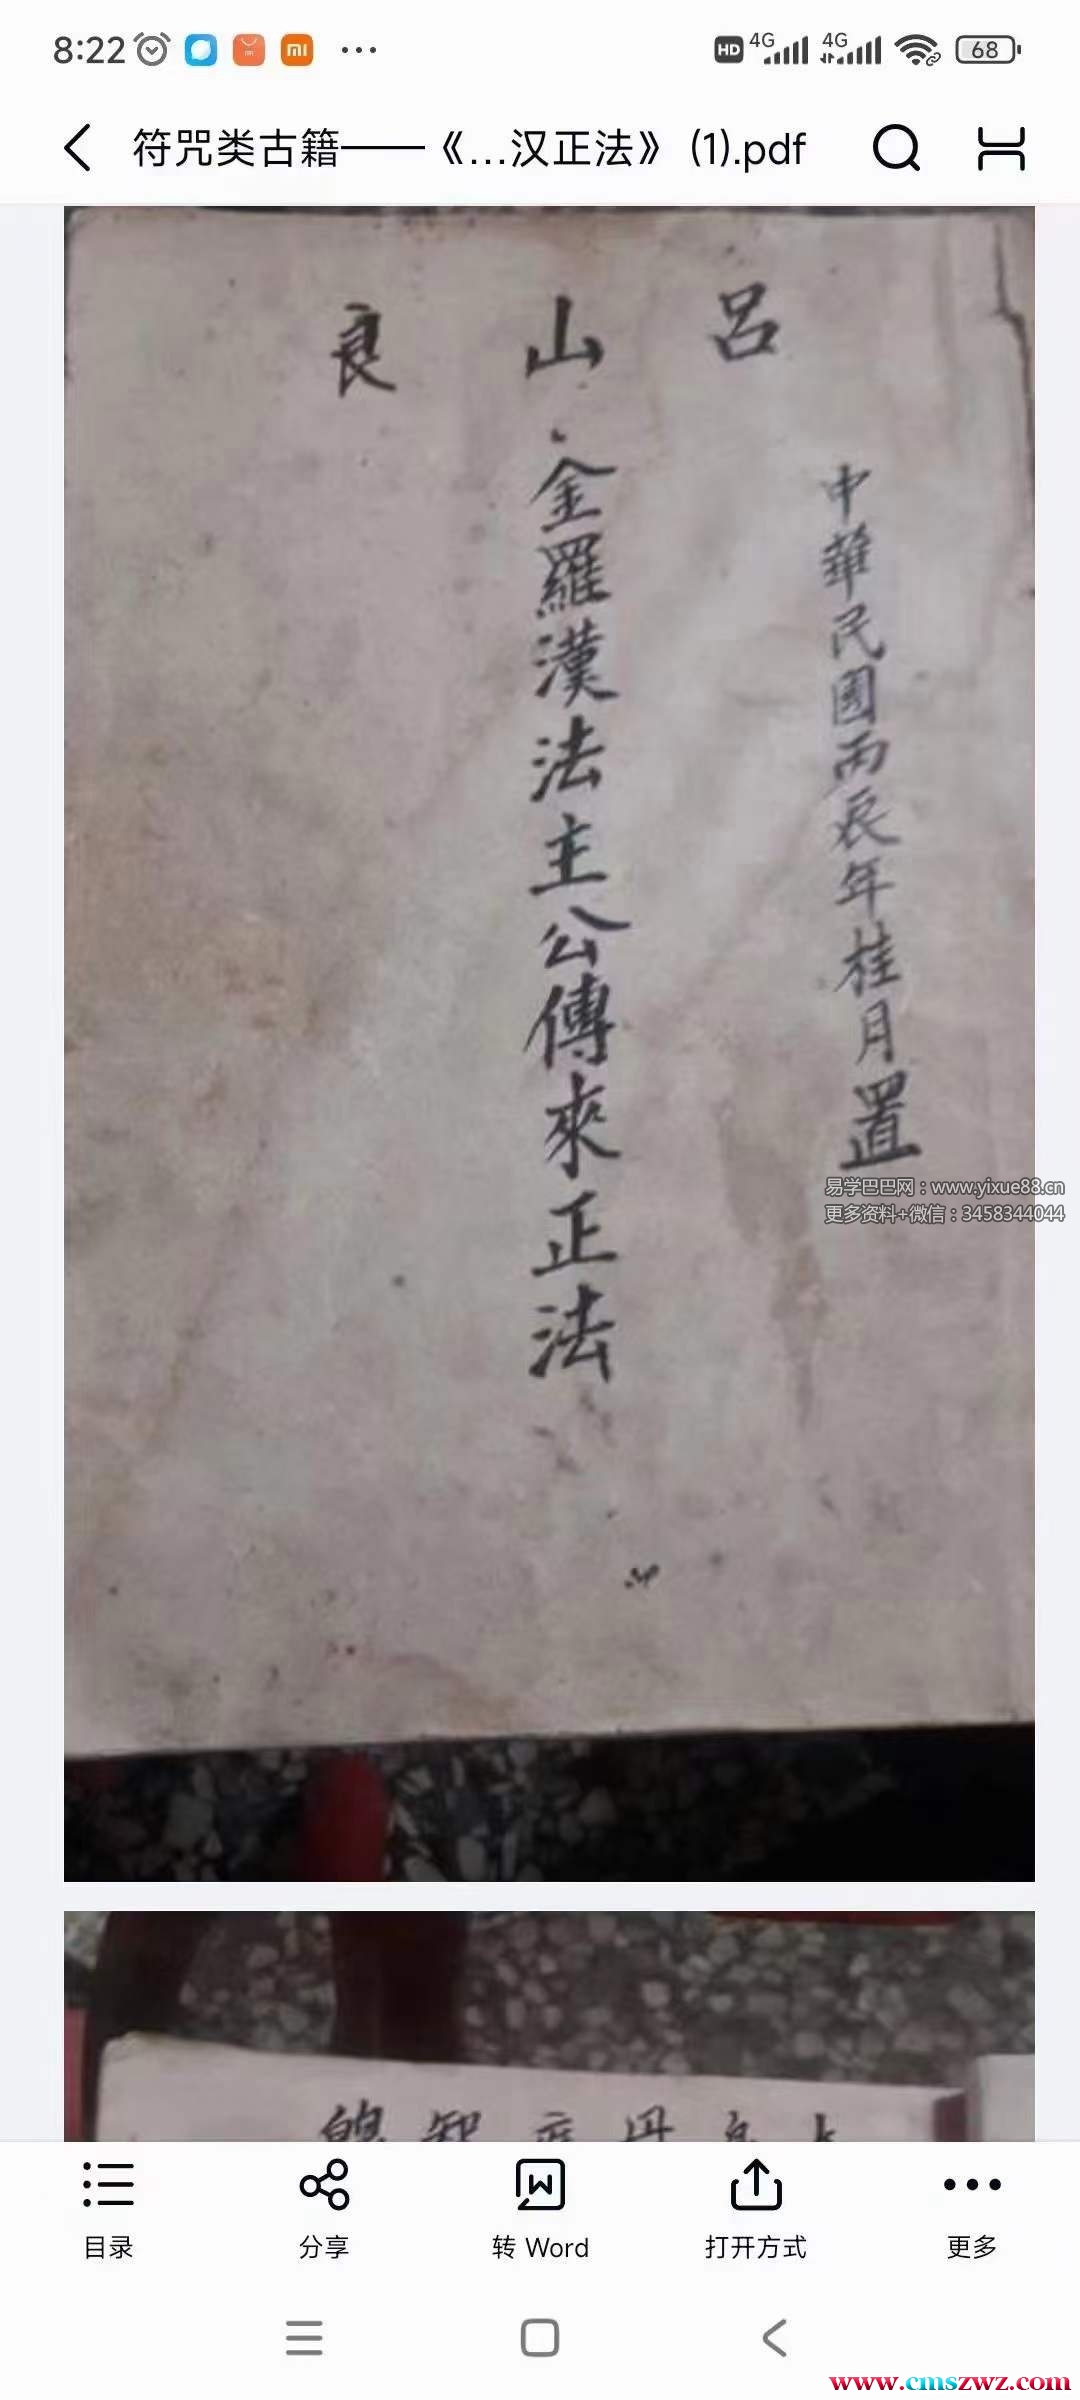 8:22
HD 4G 4G 68
符咒类古籍——《...汉正法》 (1).pdf
呂山良
中華民國丙辰年桂月置
金羅漢法主公傳來正法
易学巴巴网：www.yixue88.cn
更多资料+微信：3458344044
目录
分享
转 Word
打开方式
更多
www.cmszwz.com